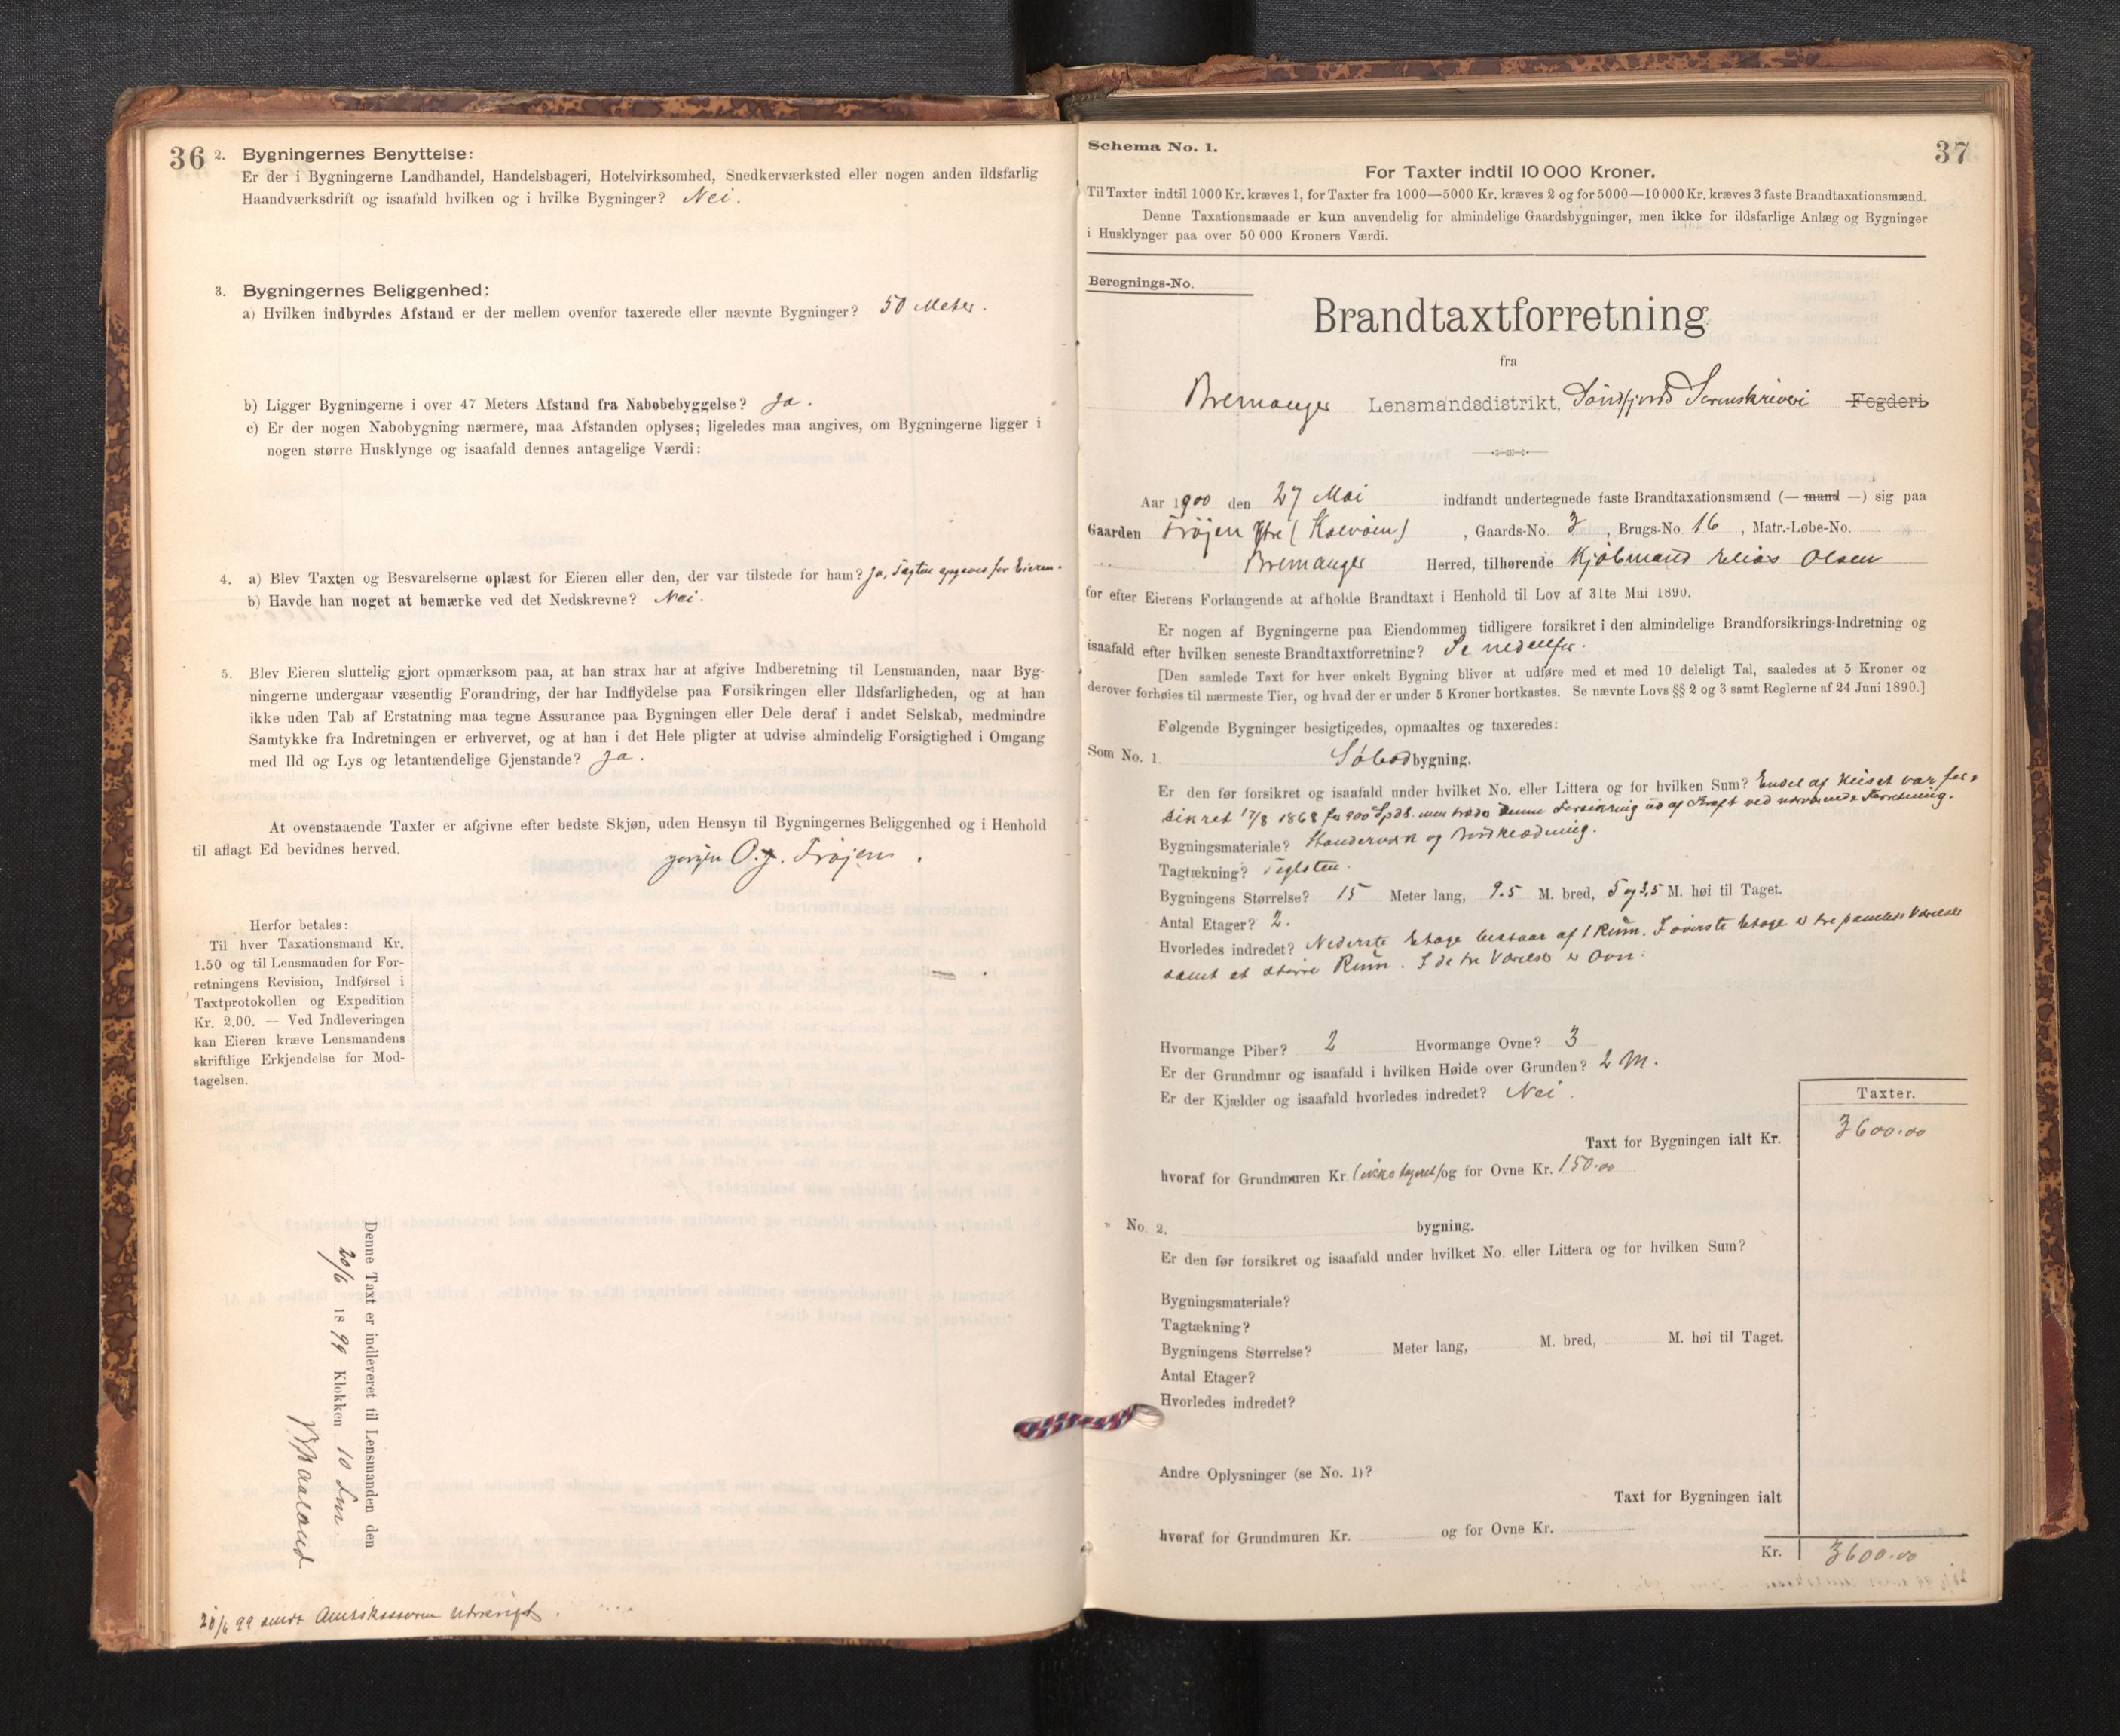 36
2. Bygningernes Benyttelse:
Er der i Bygningerne Landhandel, Handelsbageri, Hotelvirksomhed, Snedkerværksted eller nogen anden ildsfarlig
Haandværksdrift og isaafald hvilken og i hvilke Bygninger? Nei.
3. Bygningernes Beliggenhed:
a) Hvilken indbyrdes Afstand er der mellem ovenfor taxerede eller nævnte Bygninger? 50 Meter.
b) Ligger Bygningerne i over 47 Meters Afstand fra Nabobebyggelse? Ja.
c) Er der nogen Nabobygning nærmere, maa Afstanden oplyses; ligeledes maa angives, om Bygningerne ligger i
nogen større Husklynge og isaafald dennes antagelige Værdi:
4. a) Blev Taxten og Besvarelserne oplæst for Eieren eller den, der var tilstede for ham? Ja, Taxten opgaves for Eieren.
b) Havde han noget at bemærke ved det Nedskrevne? Nei.
5. Blev Eieren sluttelig gjort opmærksom paa, at han strax har at afgive Indberetning til Lensmanden, naar Byg-
ningerne undergaar væsentlig Forandring, der har Indflydelse paa Forsikringen eller Ildsfarligheden, og at han
ikke uden Tab af Erstatning maa tegne Assurance paa Bygningen eller Dele deraf i andet Selskab, medmindre
Samtykke fra Indretningen er erhvervet, og at han i det Hele pligter at udvise almindelig Forsigtighed i Omgang
med Ild og Lys og letantændelige Gjenstande? Ja.
At ovenstaaende Taxter er afgivne efter bedste Skjøn, uden Hensyn til Bygningernes Beliggenhed og i Henhold
til aflagt Ed bevidnes herved.
O. J. Frøjen.
Herfor betales:
Til hver Taxationsmand Kr.
1.50 og til Lensmanden for For-
retningens Revision, Indførsel i
Taxtprotokollen og Expedition
Kr. 2.00. — Ved Indleveringen
kan Eieren kræve Lensmandens
skriftlige Erkjendelse for Mod-
tagelsen.
Denne Taxt er indleveret til Lensmanden den
20/6 1899 Klokken 10 Fm.
20/6 99 sendt Amtskassereren
37
Schema No. 1.
For Taxter indtil 10 000 Kroner.
Til Taxter indtil 1000 Kr. kræves 1, for Taxter fra 1000—5000 Kr. kræves 2 og for 5000—10 000 Kr. kræves 3 faste Brandtaxationsmænd.
Denne Taxationsmaade er kun anvendelig for almindelige Gaardsbygninger, men ikke for ildsfarlige Anlæg og Bygninger
i Husklynger paa over 50 000 Kroners Værdi.
Beregnings-No.
Brandtaxtforretning
fra
Bremanger Lensmandsdistrikt, Søndfjords Sorenskriveri Fogderi
Aar 1900 den 27 Mai indfandt undertegnede faste Brandtaxationsmænd (— mand —) sig paa
Gaarden Frøjen Ytre (Kalvøen), Gaards-No. 3, Brugs-No. 16, Matr.-Løbe-No.
Bremanger Herred, tilhørende Kjøbmand Elias Olsen
for efter Eierens Forlangende at afholde Brandtaxt i Henhold til Lov af 31te Mai 1890.
Er nogen af Bygningerne paa Eiendommen tidligere forsikret i den almindelige Brandforsikrings-Indretning og
isaafald efter hvilken seneste Brandtaxtforretning? Se nedenfor.
[Den samlede Taxt for hver enkelt Bygning bliver at udføre med et med 10 deleligt Tal, saaledes at 5 Kroner og
derover forhøies til nærmeste Tier, og hvad der er under 5 Kroner bortkastes. Se nævnte Lovs §§ 2 og 3 samt Reglerne af 24 Juni 1890.]
Følgende Bygninger besigtigedes, opmaaltes og taxeredes:
Som No. 1. Søbodbygning.
Er den før forsikret og isaafald under hvilket No. eller Littera og for hvilken Sum? Endel af Huset var for-
sikret 17/8 1868 for 900 Spd. men træder denne Forsikring ud af Kraft ved nærværende Forretning.
Bygningsmateriale? Standerværk og Bordklædning.
Tagtækning? Teglsten.
Bygningens Størrelse? 15 Meter lang, 9.5 M. bred, 5 og 3,5 M. høi til Taget.
Antal Etager? 2.
Hvorledes indredet? Nederste Etage bestaar af 1 Rum. I øverste Etage er tre panelede Værelser
samt et større Rum. I de tre Værelser er Ovn.
Hvormange Piber? 2 Hvormange Ovne? 3
Er der Grundmur og isaafald i hvilken Høide over Grunden? 2 M.
Er der Kjælder og isaafald hvorledes indredet? Nei.
Taxter.
Taxt for Bygningen ialt Kr. 3600.00
hvoraf for Grundmuren Kr. (ikke taxeret) og for Ovne Kr. 150.00
" No. 2. bygning.
Er den før forsikret og isaafald under hvilket No. eller Littera og for hvilken Sum?
Bygningsmateriale?
Tagtækning?
Bygningens Størrelse? Meter lang, M. bred, M. høi til Taget.
Antal Etager?
Hvorledes indredet?
Andre Oplysninger (se No. 1)?
Taxt for Bygningen ialt
hvoraf for Grundmuren Kr. og for Ovne Kr.
Kr. 3600.00